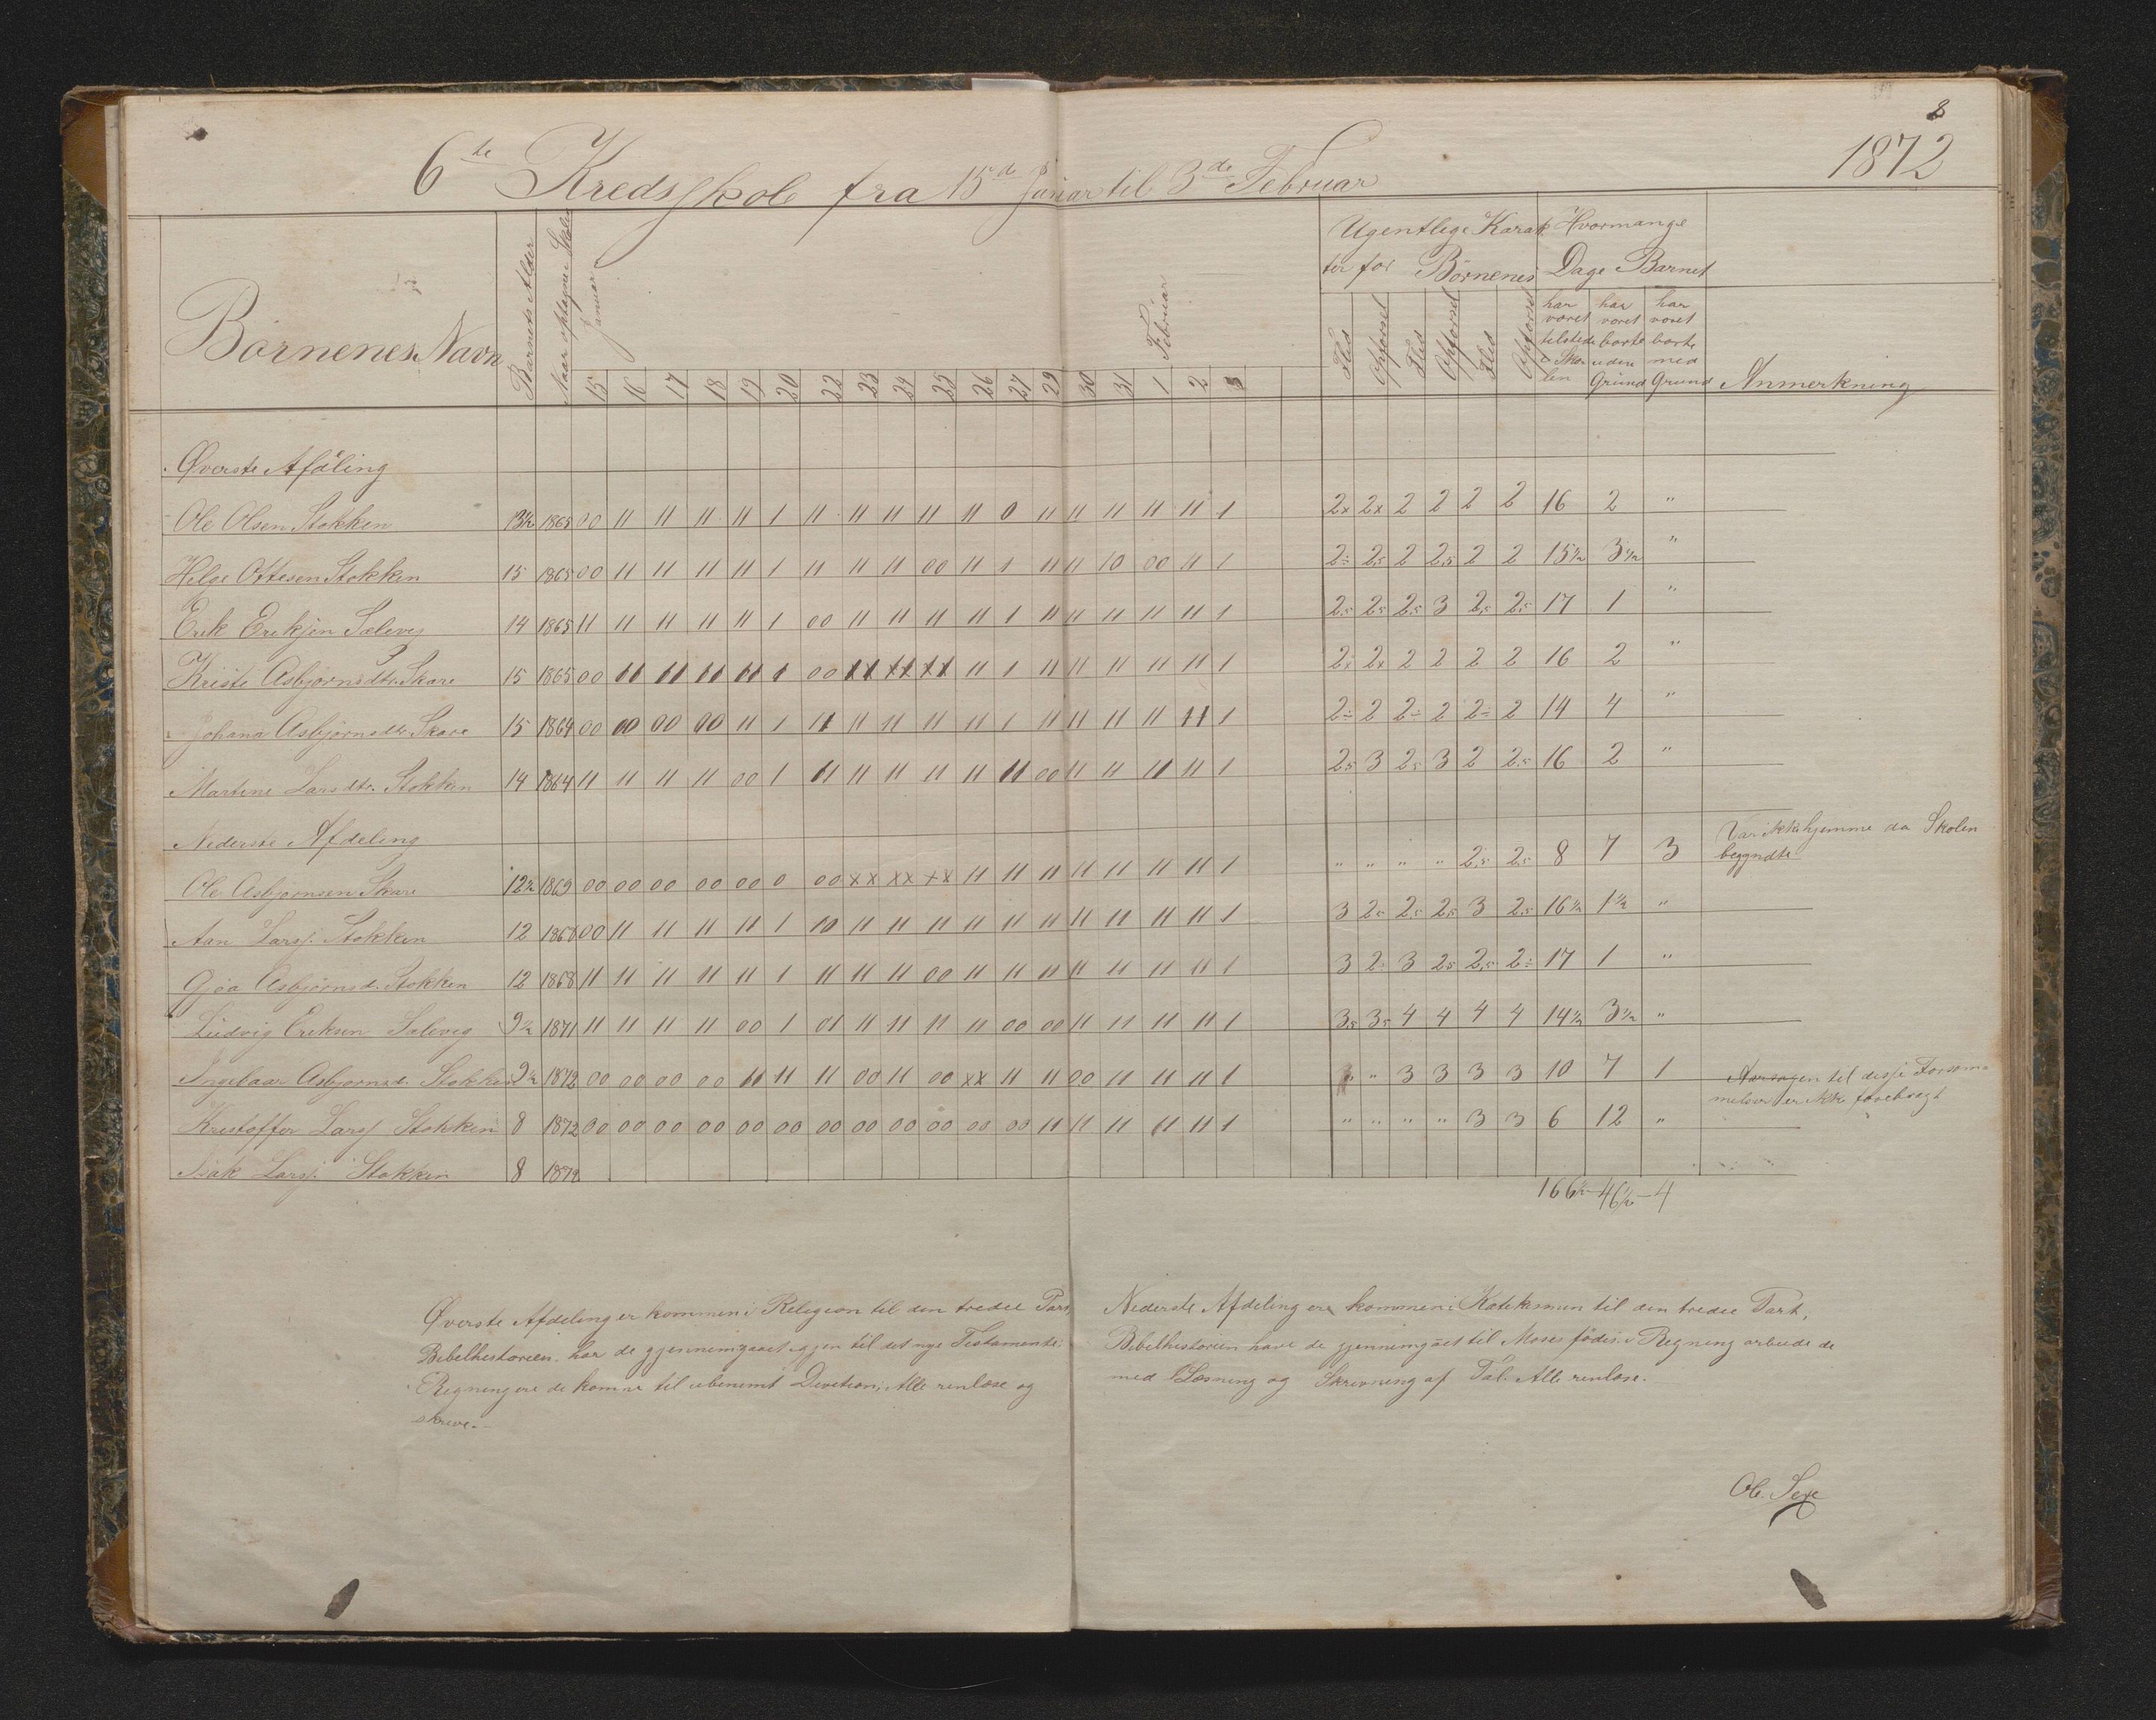 8
1872
6te Kredsskole fra 15de Januar til 3de Februar
Börnenes Navn
Barnets Alder
Naar optagne i Skolen
Januar
Februar
Ugentlige Karak-
ter for Börnenes
Hvormange
Dage Barnet
Flid Opförsel Flid Opförsel Flid Opförsel
har været tilstede i Skolen
har været borte uden Grund
har været borte med Grund
Anmerkning
15 16 17 18 19 20 22 23 24 25 26 27 29 30 31 1 2 3
Øverste Afdling
Ole Olsen Stokken 13½ 1865 00 11 11 11 11 1 11 11 11 11 11 0 11 11 11 11 11 1 2x 2x 2 2 2 2 16 2 "
Helge Ottesen Stokken 15 1865 00 11 11 11 11 1 11 11 11 00 11 1 11 11 10 00 11 1 2÷ 2,5 2 2,5 2 2 15½ 3½ "
Erik Eriksen Salevig 14 1865 11 11 11 11 11 1 00 11 11 11 11 1 11 11 11 11 11 1 2,5 2,5 2,5 3 2,5 2,5 17 1 "
Kristi Asbjørnsdtr. Skare 15 1865 00 11 11 11 11 1 00 xx xx xx 11 1 11 11 11 11 11 1 2x 2x 2 2 2 2 16 2 "
Johana Asbjørnsdtr. Skare 15 1864 00 00 00 00 11 1 11 11 11 11 11 1 11 11 11 11 11 1 2÷ 2 2÷ 2 2÷ 2 14 4 "
Martine Larsdtr. Stokken 14 1864 11 11 11 11 00 1 11 11 11 11 11 11 00 11 11 11 11 1 2,5 3 2,5 3 2 2,5 16 2 "
Nederste Afdeling
Ole Asbjørnsen Skare 12½ 1869 00 00 00 00 00 0 00 xx xx xx 11 11 11 11 11 11 11 1 " " " " 2,5 2,5 8 7 3 Var ikke hjemme da Skolen
begyndte
Aan Larss. Stokken 12 1868 00 11 11 11 11 1 10 11 11 11 11 11 11 11 11 11 11 1 3 2,5 2,5 2,5 3 2,5 16½ 1½ "
Gjöa Asbjørnsd. Stokken 12 1868 11 11 11 11 11 1 11 11 11 00 11 11 11 11 11 11 11 1 3 2÷ 3 2,5 2,5 2÷ 17 1 "
Ludvig Eriksen Salevig 9½ 1871 11 11 11 11 00 1 01 11 11 11 11 00 00 11 11 11 11 1 3,5 3,5 4 4 4 4 14½ 3½ "
Ingebaar Asbjørnsd. Stokken 9½ 1872 00 00 00 00 11 11 11 00 11 00 xx 11 11 00 11 11 11 1 " " 3 3 3 3 10 7 1 Aarsagen til disse Forsöm-
melser er ikke forebragt
Kristoffer Larss. Stokken 8 1872 00 00 00 00 00 00 00 00 00 00 00 00 11 11 11 11 11 1 " " " " 3 3 6 12 "
Isak Larss. Stokken 8 1872
166½ - 46½ - 4
Øverste Afdeling er kommen i Religion til den tredie Part,
Bibelhistorien har de gjennemgaaet igjen til det nye Testamente.
Regning ere de komne til ubenemt Divetion. Alle renlæse og
skrive.
Nederste Afdeling ere kommen i Katekismen til den tredie Part,
Bibelhistorien have de gjennemgået til Moses födes. i Regning arbeide de
med Læsning og Skrivning af Tal. Alle renlæse.
Ole Sexe